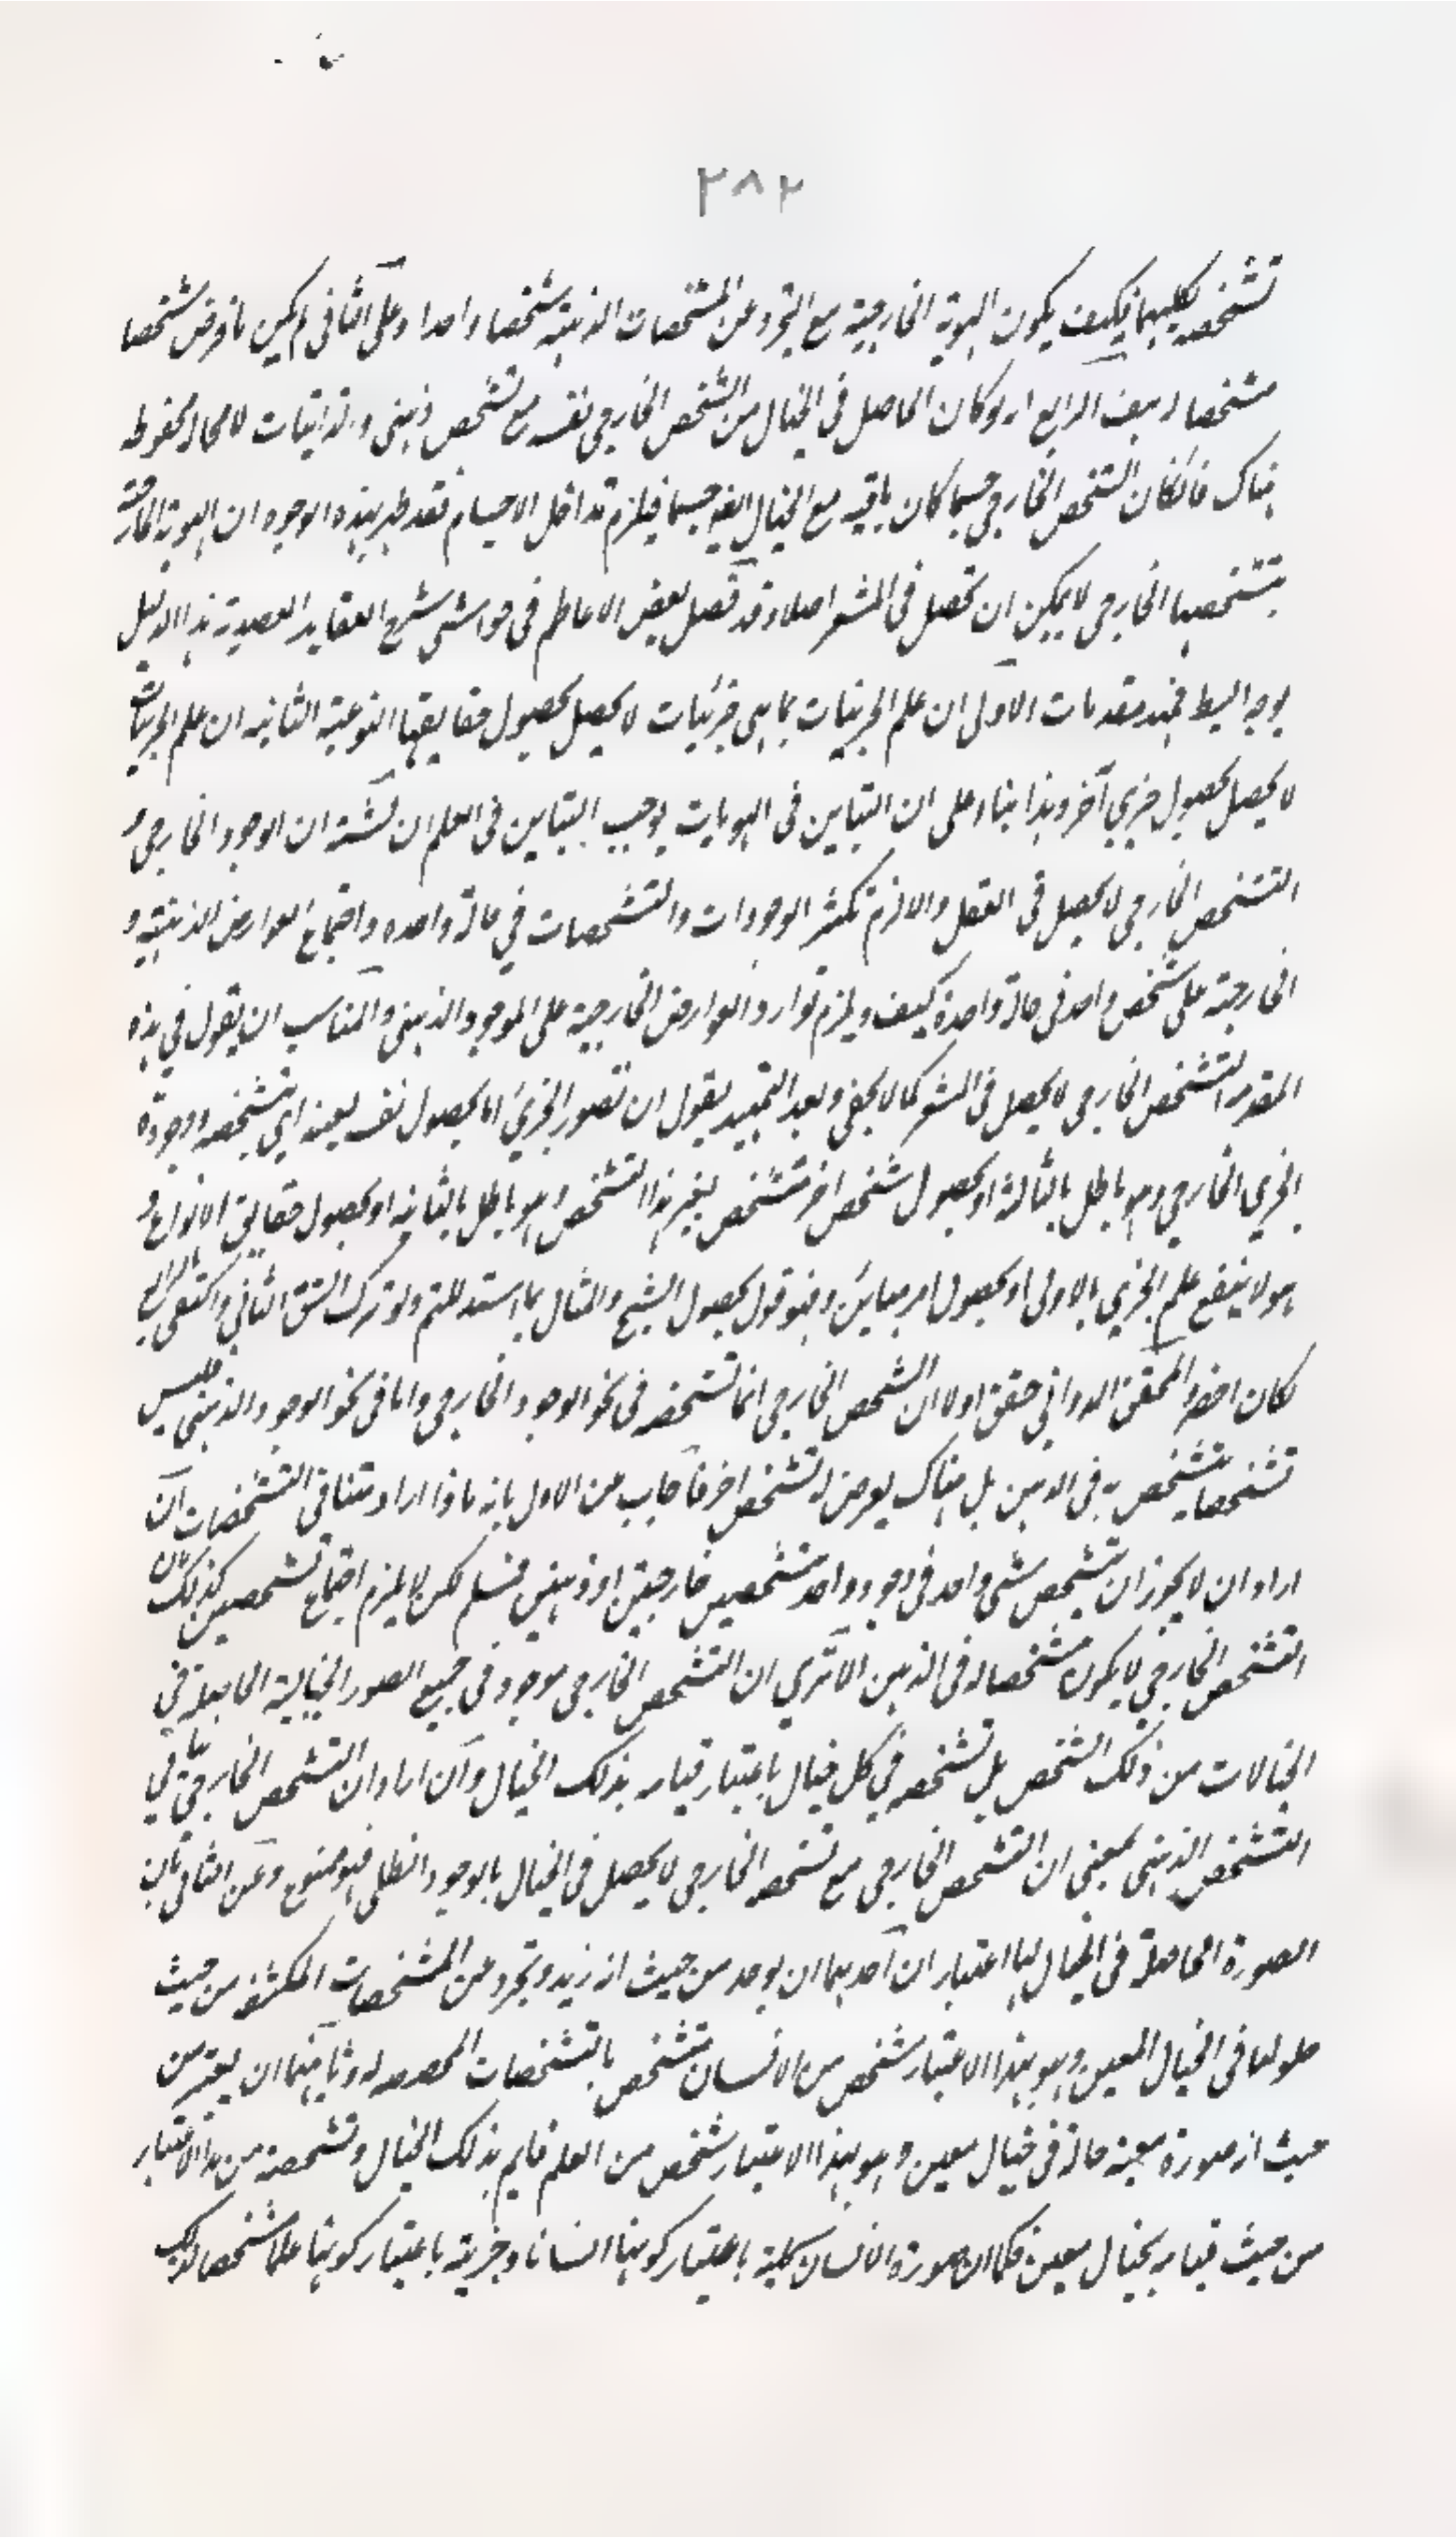 ٢٨٢
تشخصه بكليهما فكيف يكون الهوية الخارجية مع التجرد عن المشخصات الذهنية شخصا واحدا وعلى الثاني لم يكن ما فرض مشخصا
مشخصا الرابع انه لو كان الحاصل في الخيال من الشخص الخارجي نفسه مع تشخص ذهني والذاتيات لا محالة محفوظة
هناك فان كان الشخص الخارجي جسما كان باقيه مع الخيال ايضا جسما فيلزم تداخل الاجسام فقد ظهر بهذه الوجوه ان الهوية الخارجية
بتشخصها الخارجي لا يمكن ان تحصل في المشعر اصلا وقد فصل بعض الاعاظم في حواشي شرح العقايد العضدية هذا الدليل
بوجه البسط فمهد مقدمات الاولى ان علم الجزئيات بما هي جزئيات لا يحصل بحصول حقايقها النوعية الثانية ان علم الجزئيات
لا يحصل بحصول جزئي آخر وهذا بناء على ان التباين في الهويات يوجب التباين في العلم ان لشئ ان الوجود الخارجي و
التشخص الخارجي لا يحصل في العقل والا لزم تكثر الوجودات والتشخصات في حالة واحدة واجتماع العوارض الذهنية و
الخارجية على شخص واحد في حالة واحدة كيف ويلزم توارد العوارض الخارجية على الموجود الذهني والمناسب ان يقول في هذه
المقدمة التشخص الخارجي لا يحصل في المشعر كما لا يخفى وبعد التمهيد يقول ان تصور الجزئي اما بحصول نفسه بعينه اي بتشخصه ووجوده
الجزئي الخارجي وهو باطل بالثالثة او بحصول شخص اخر متشخص بغير هذا التشخص وهو باطل بالثانية او بحصول حقايق الانواع و
هو لا ينفع علم الجزئي بالاولى او بحصول امر مباين وهو قول بحصول الشبح والمثال بما استدللتم ولو ترك الشق الثاني واكتفى
لكان اخصر والمحقق الدواني حقق اولا ان الشخص الخارجي انما تشخصه في نحو الوجود الخارجي واما في نحو الوجود الذهني فليس
تشخصا يتشخص به في الذهن بل هناك يعرض له تشخص اخر فاجاب عن الاول بانه ماذا اراد بتنافي التشخصات ان
اراد ان لا يجوز ان يتشخص شئ واحد في وجود واحد بتشخصين خارجيين او ذهنيين فمسلم لكن لا يلزم اجتماع تشخصين كذلك
التشخص الخارجي لا يكون مشخصا له في الذهن الا ترى ان التشخص الخارجي موجود في جميع الصور الخيالية الحاصلة في
الخيالات من ذلك الشخص بل تشخصه في كل خيال باعتبار قيامه بذلك الخيال وان اراد ان التشخص الخارجي ينافي
التشخص الذهني بمعنى ان التشخص الخارجي مع تشخصه الخارجي لا يحصل في الخيال بالوجود الظلي فهو ممنوع وعن الثاني بان
الصورة الحاصلة في الخيال لها اعتباران احدهما ان يوجد من حيث انه زيد ويجرد عن المشخصات المكتنفة من حيث
حلولها في الخيال المعين وهو بهذا الاعتبار شخص من الانسان متشخص بالتشخصات المخصصة له وثانيهما ان يعتبر من
حيث انه صورة معينة حالة في خيال معين وهو بهذا الاعتبار شخص من العلم قايم بذلك الخيال وتشخصه من هذا الاعتبار
من حيث قيامه بخيال معين فكما ان صورة الانسان كلية باعتبار كونها انسانا وجزئية باعتبار كونها علما شخصا كذلك